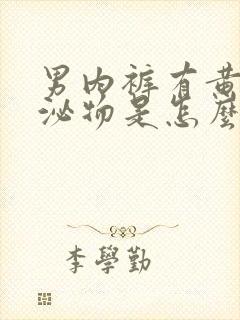 男内裤有黄
泌物是怎麼
李學勤